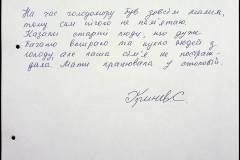 На час голодомору був зовсім малим,
тому сам нічого не пам'ятаю.
Казали старші люди, що дуже
багато вмирало та пухло людей з
голоду але наша сім'я не постраж-
дала. Мати працювала у столовій.